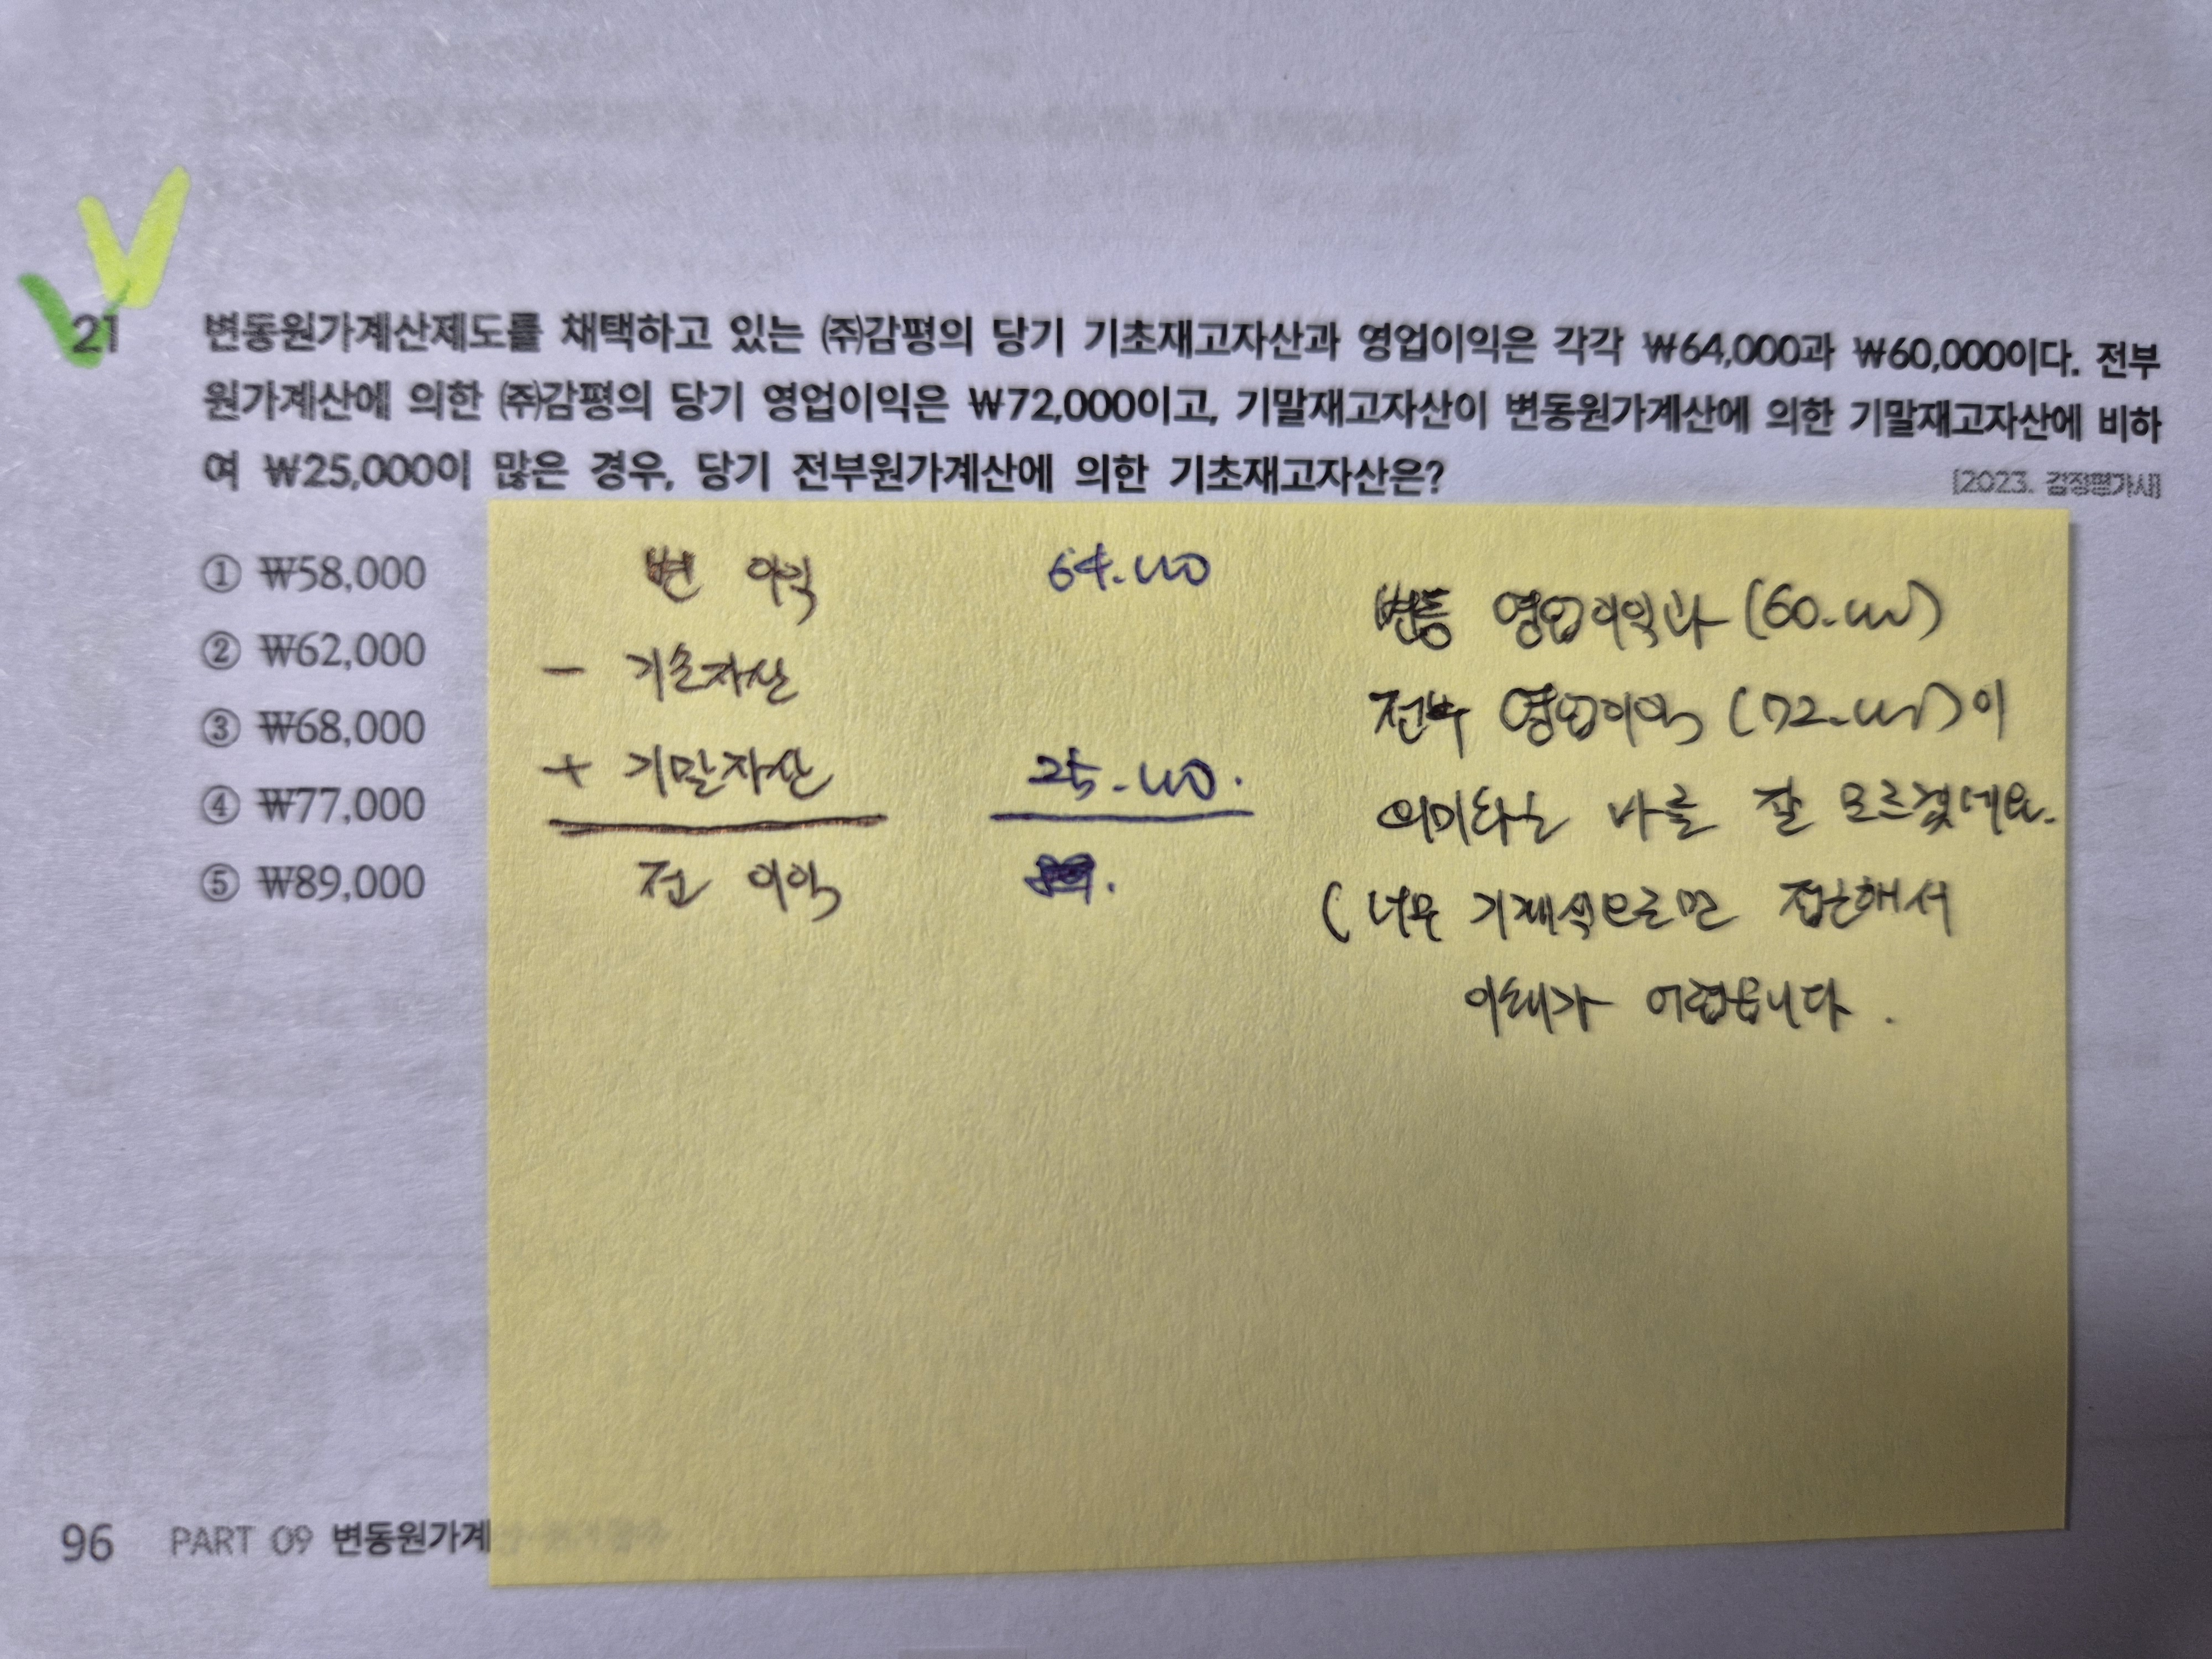 21 변동원가계산제도를 채택하고 있는 ㈜감평의 당기 기초재고자산과 영업이익은 각각 ₩64,000과 ₩60,000이다. 전부
원가계산에 의한 ㈜감평의 당기 영업이익은 ₩72,000이고, 기말재고자산이 변동원가계산에 의한 기말재고자산에 비하
여 ₩25,000이 많은 경우, 당기 전부원가계산에 의한 기초재고자산은?
[2023. 감정평가사]
① ₩58,000
② ₩62,000
③ ₩68,000
④ ₩77,000
⑤ ₩89,000
변 이익 64.000
- 기초자산
+ 기말자산 25.000.
전 이익
변동 영업이익과 (60.000)
전부 영업이익 (72.000)이
의미하는 바를 잘 모르겠네요.
(너무 기계식으로만 접근해서
이해가 어렵습니다.
96 PART 09 변동원가계